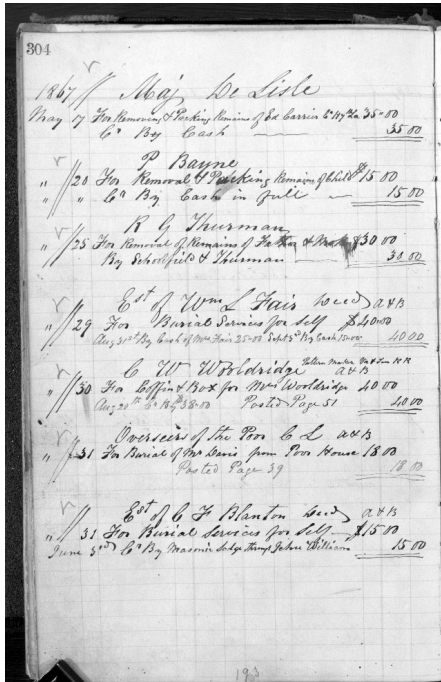 304
1867 // Maj De Lisle
May 17 For Removing & Packing Remains of Ed Carrier 35.00
Cr By Cash 35.00
P Bayne
" // 20 For Removal & Packing Remains of Child $15.00
" // " Cr By Cash in full 15.00
R G Thurman
" // 25 For Removal of Remains of Father & Mother $30 00
By Schoolfield & Thurman 30.00
Est of Wm L Fair Decd A & B
" // 29 For Burial Services for Self $40.00
Aug 31st By Cash of Mrs Fair 25.00 Sept 3d By Cash 15.00 40 00
C W Wooldridge Pattern Maker Va & Tenn R R A & B
" // 30 For Coffin & Box for Mrs Wooldridge 40 00
Aug 20th 38.00 Posted Page 51 40 00
Overseers of the Poor C L A & B
" // 31 For Burial of Mr Davis from Poor House 18 00
Posted Page 39 18.00
Est of C F Blanton Decd A & B
" // 31 For Burial Services for Self $15 00
June 3rd Cr By Masonic Lodge through John Williams 15 00
193